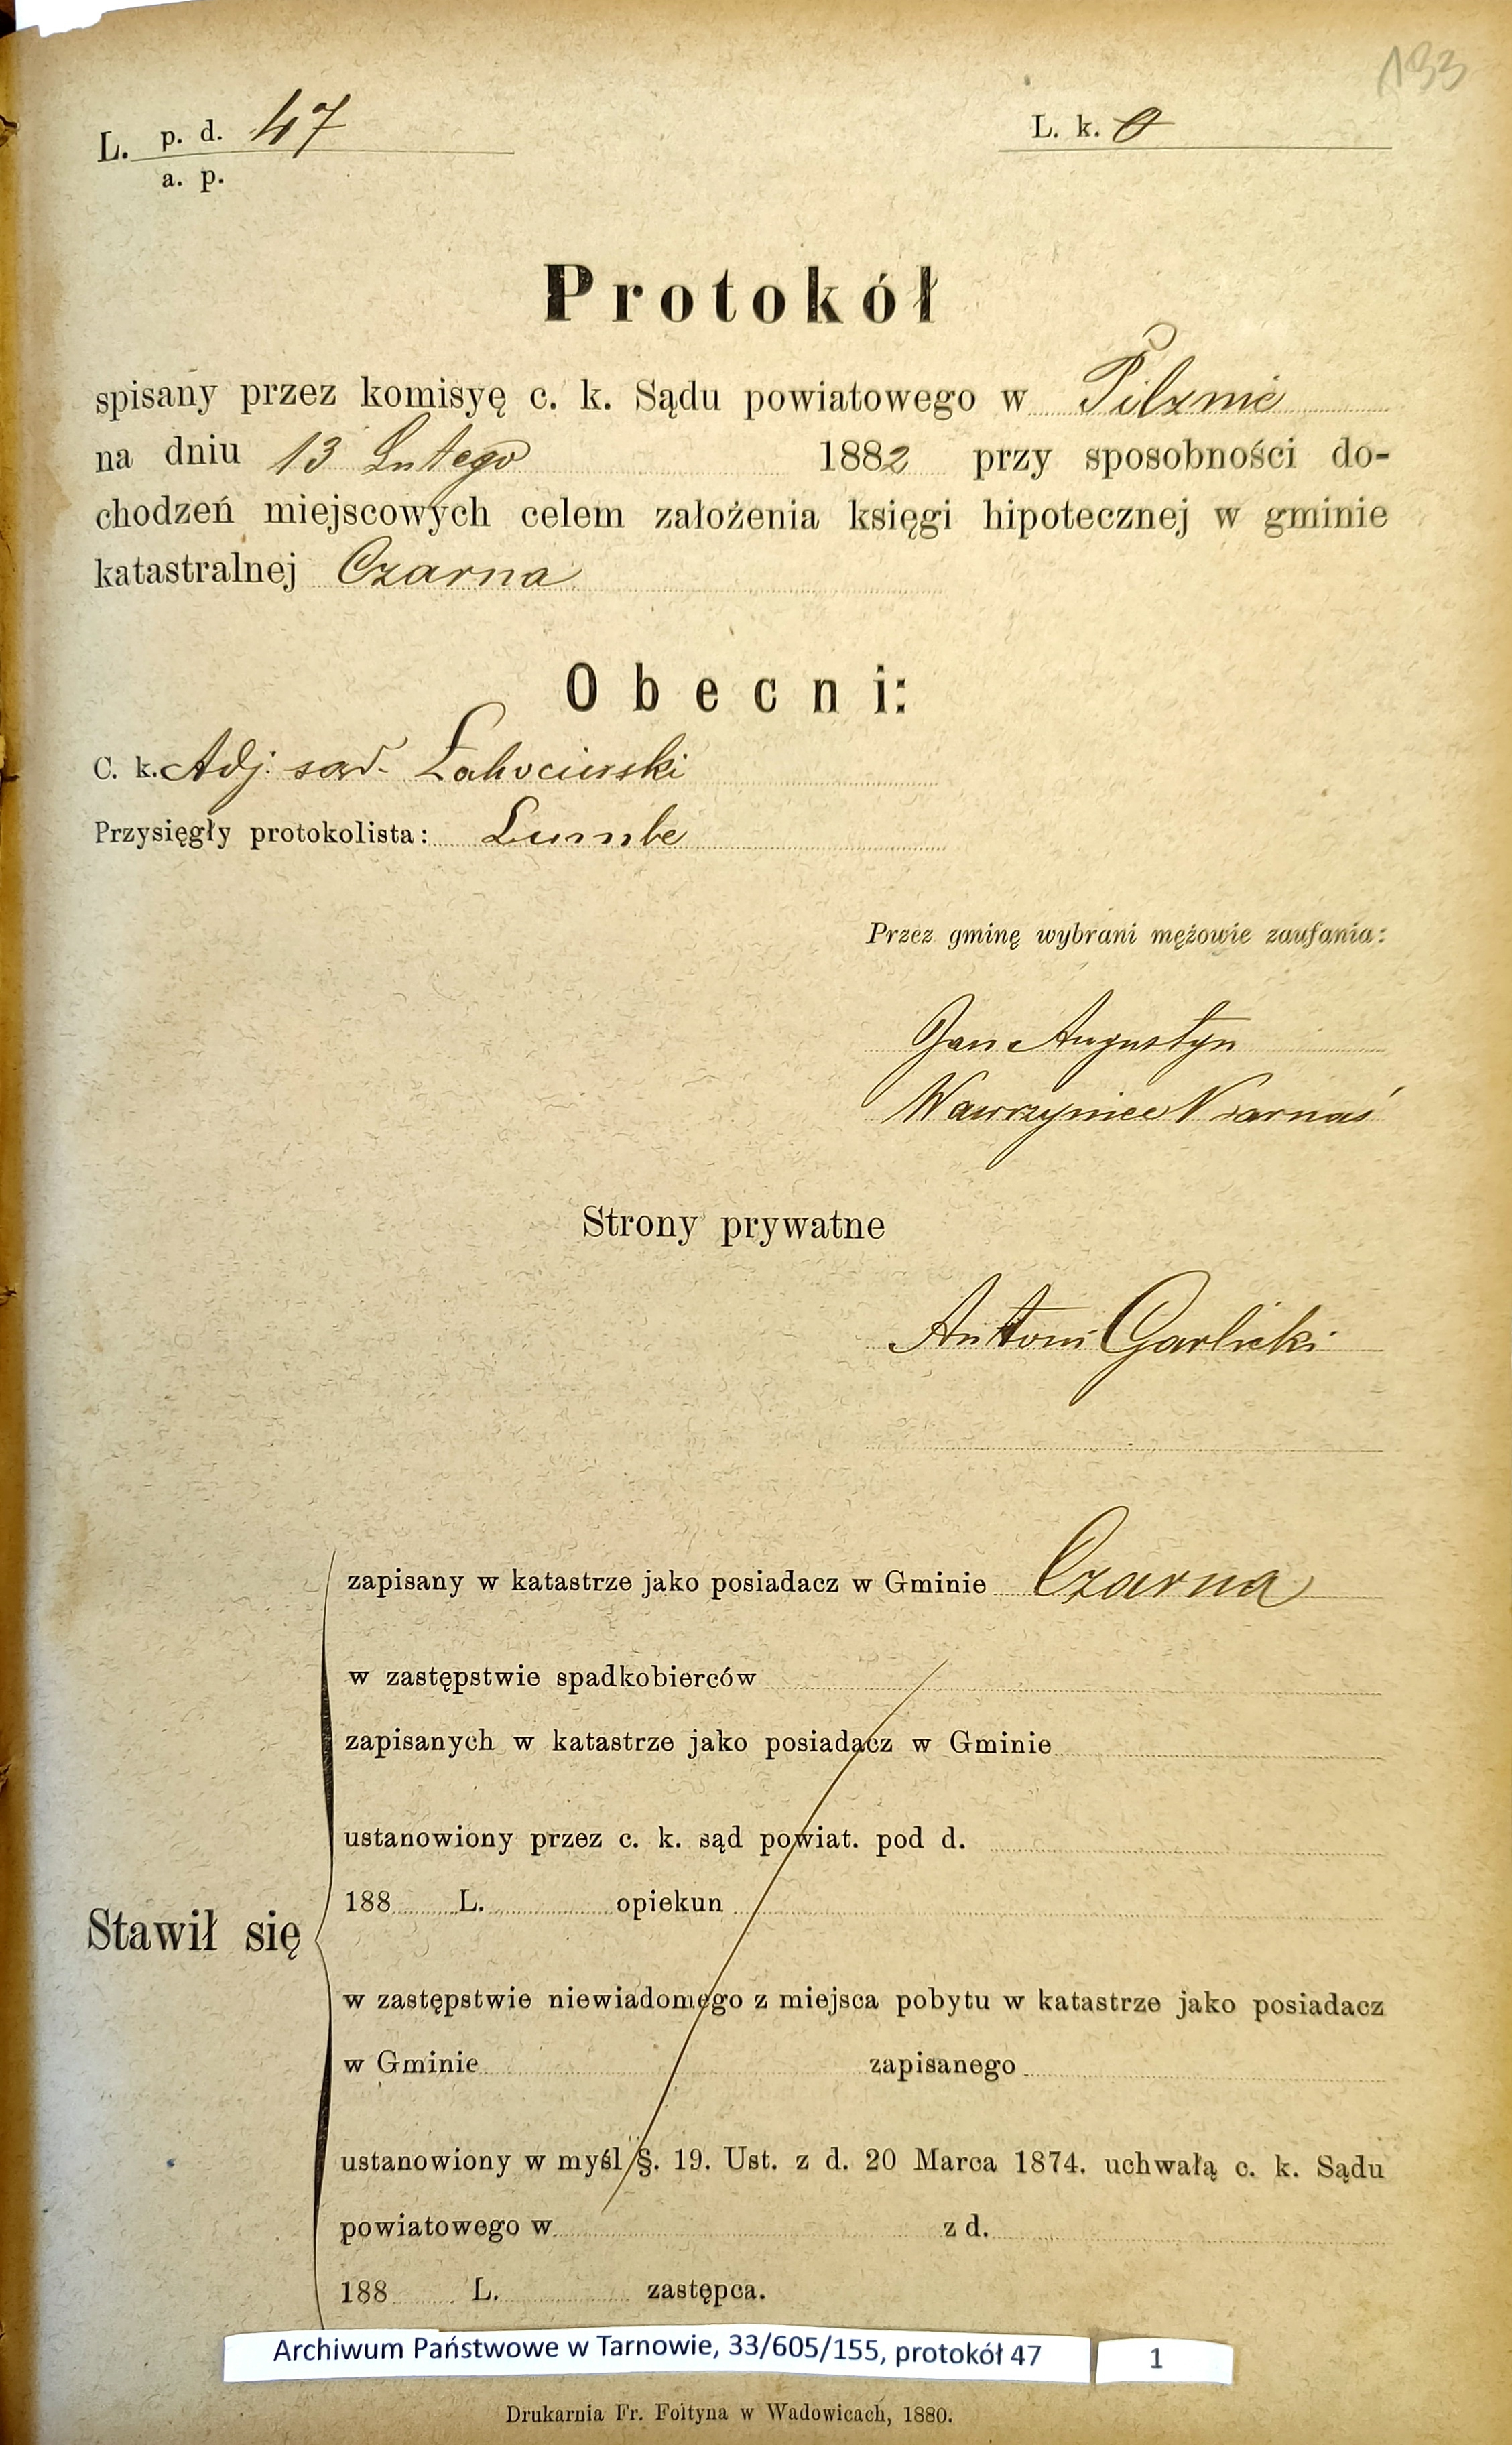 133
L. p. d. 47
a. p.
L. k. 0
Protokół
spisany przez komisyę c. k. Sądu powiatowego w Pilznie
na dniu 13 Lutego 1882 przy sposobności do-
chodzeń miejscowych celem założenia księgi hipotecznej w gminie
katastralnej Czarna
Obecni:
C. k. Adj. sąd.
Przysięgły protokolista:
Przez gminę wybrani mężowie zaufania:
Jan Augustyn
Wawrzyniec
Strony prywatne
Antoni Garlicki
zapisany w katastrze jako posiadacz w Gminie Czarna
w zastępstwie spadkobierców
zapisanych w katastrze jako posiadacz w Gminie
ustanowiony przez c. k. sąd powiat. pod d.
188 L. opiekun
Stawił się
w zastępstwie niewiadomego z miejsca pobytu w katastrze jako posiadacz
w Gminie zapisanego
ustanowiony w myśl §. 19. Ust. z d. 20 Marca 1874. uchwałą c. k. Sądu
powiatowego w z d.
188 L. zastępca.
Archiwum Państwowe w Tarnowie, 33/605/155, protokół 47 1
Drukarnia Fr. Foltyna w Wadowicach, 1880.